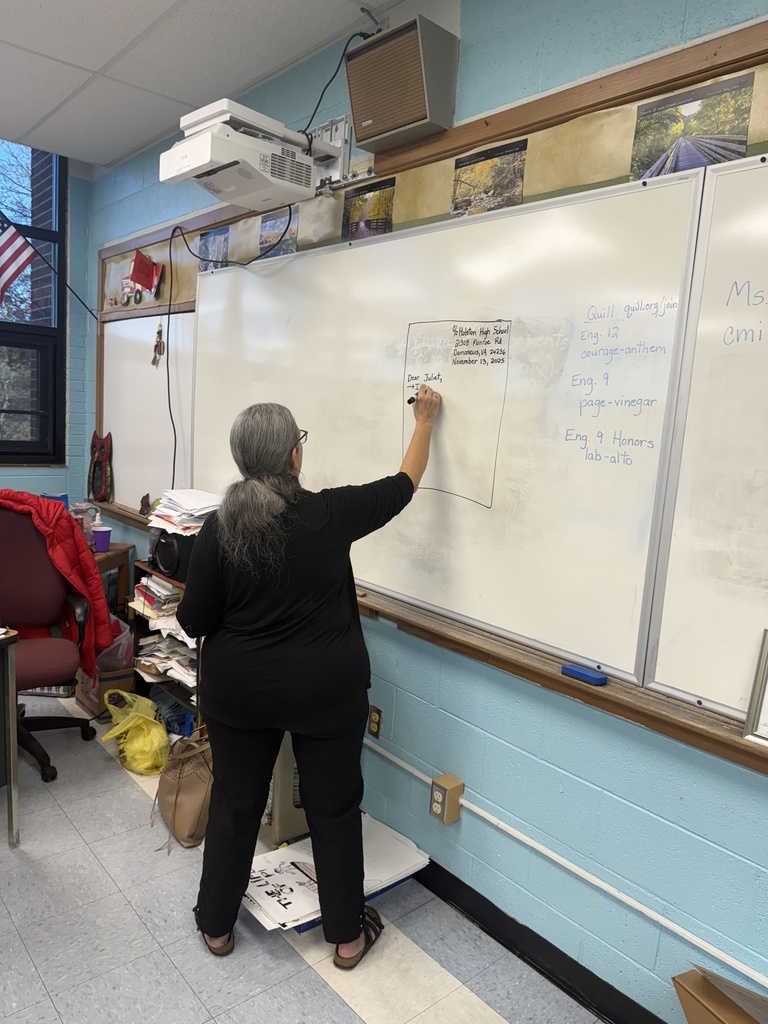 ℅ Holston High School
21308 Monroe Rd
Damascus, VA 24236
November 13, 2025
Dear Juliet,
→ I
Quill quill.org/join
Eng. 12
courage-anthem
Eng. 9
page-vinegar
Eng. 9 Honors
lab-alto
Ms.
cmi
THE LIFE
OF PI